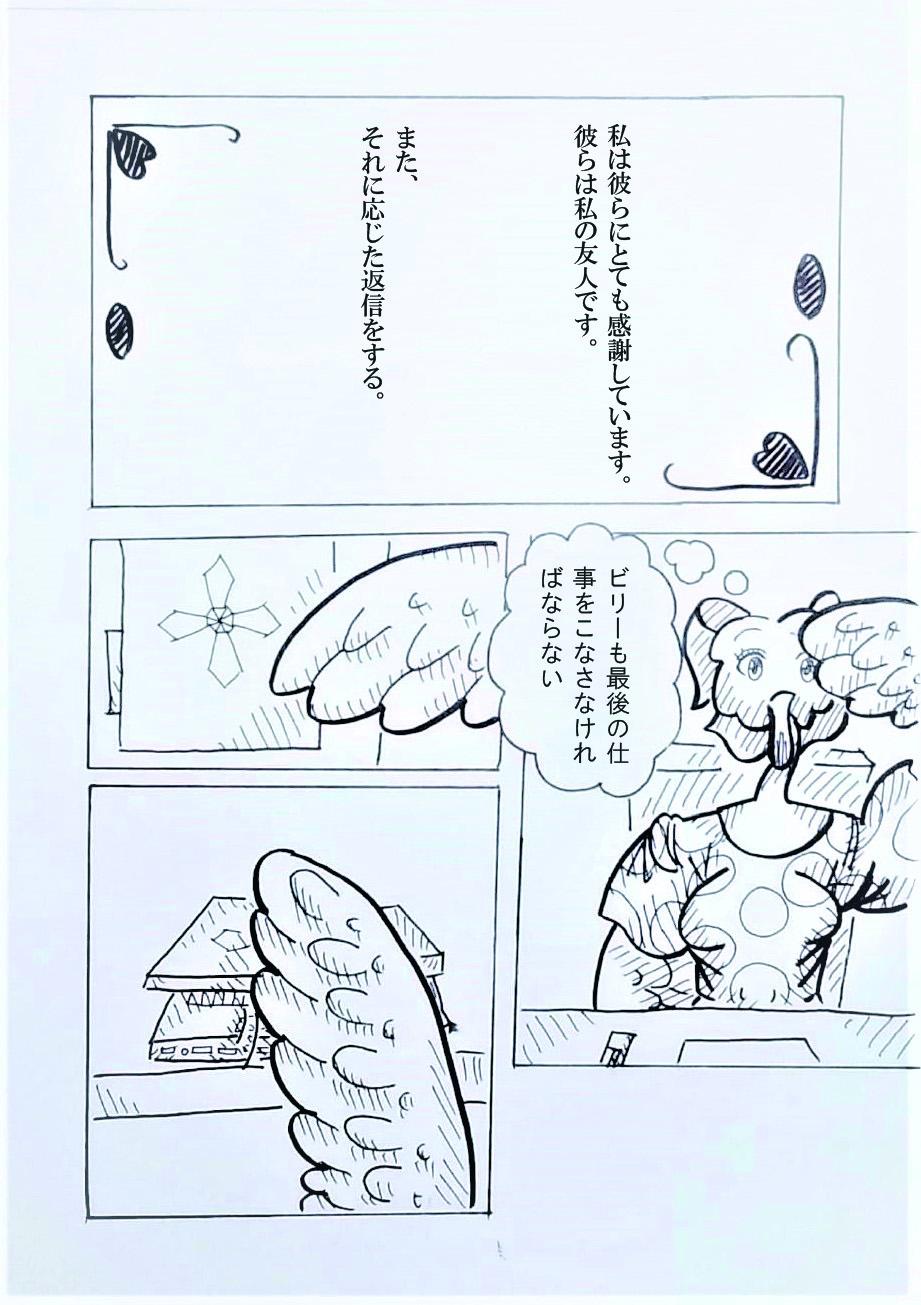 私は彼らにとても感謝しています。
彼らは私の友人です。
また、
それに応じた返信をする。
ビリーも最後の仕
事をこなさなけれ
ばならない